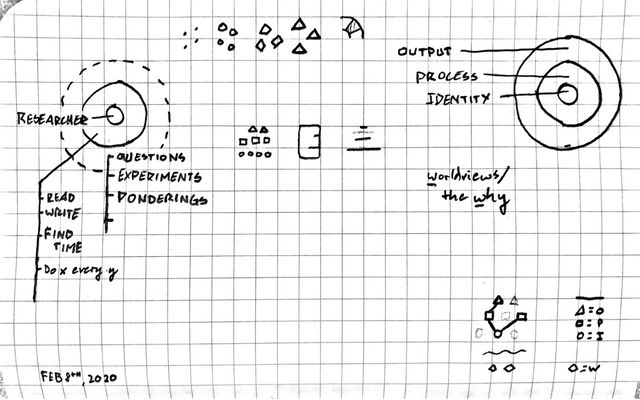 OUTPUT
PROCESS
IDENTITY
RESEARCHER
QUESTIONS
EXPERIMENTS
PONDERINGS
READ
WRITE
FIND
TIME
Do x every y
worldviews/
the why
△=O
□=P
○=I
◇=W
FEB 8TH, 2020